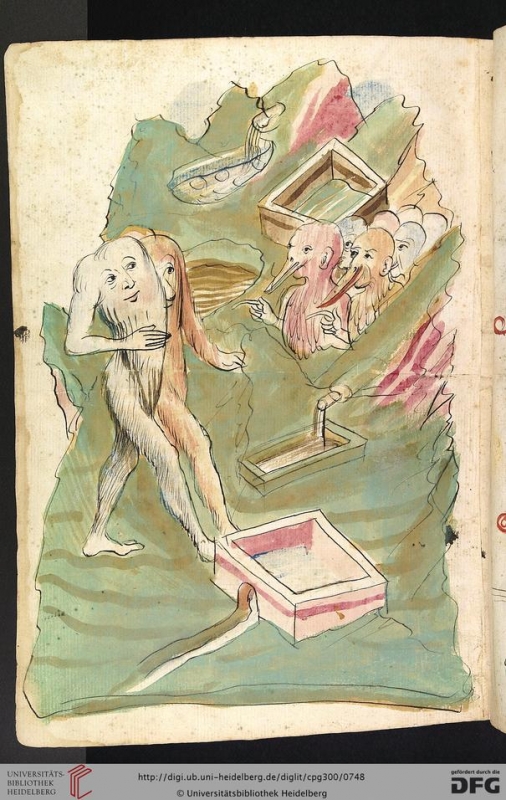 UNIVERSITÄTS-
BIBLIOTHEK
HEIDELBERG
http://digi.ub.uni-heidelberg.de/diglit/cpg300/0748
© Universitätsbibliothek Heidelberg
gefördert durch die
DFG